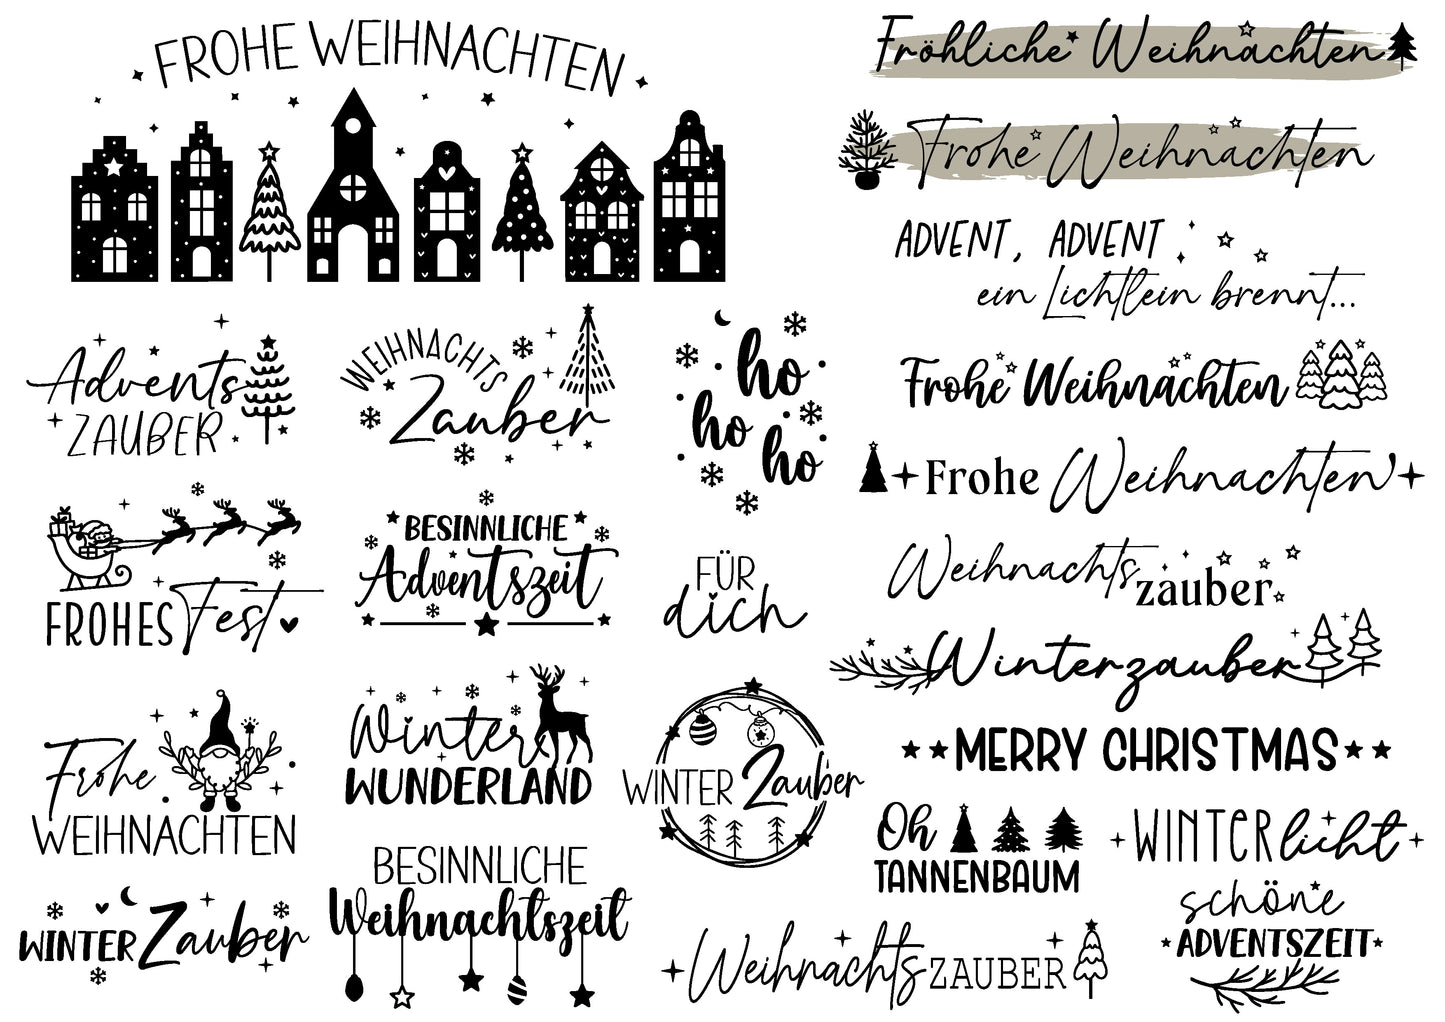 FROHE WEIHNACHTEN
Fröhliche Weihnachten
Frohe Weihnachten
ADVENT, ADVENT
ein Lichtlein brennt...
Advents
ZAUBER
WEIHNACHTS
Zauber
ho
ho
ho
Frohe Weihnachten
Frohe Weihnachten
FROHES Fest
BESINNLICHE
Adventszeit
FÜR
dich
Weihnachts
zauber
Winterzauber
Frohe
WEIHNACHTEN
Winter
WUNDERLAND
WINTER Zauber
MERRY CHRISTMAS
Oh
TANNENBAUM
WINTERlicht
WINTER Zauber
BESINNLICHE
Weihnachtszeit
WeihnachtsZAUBER
schöne
ADVENTSZEIT